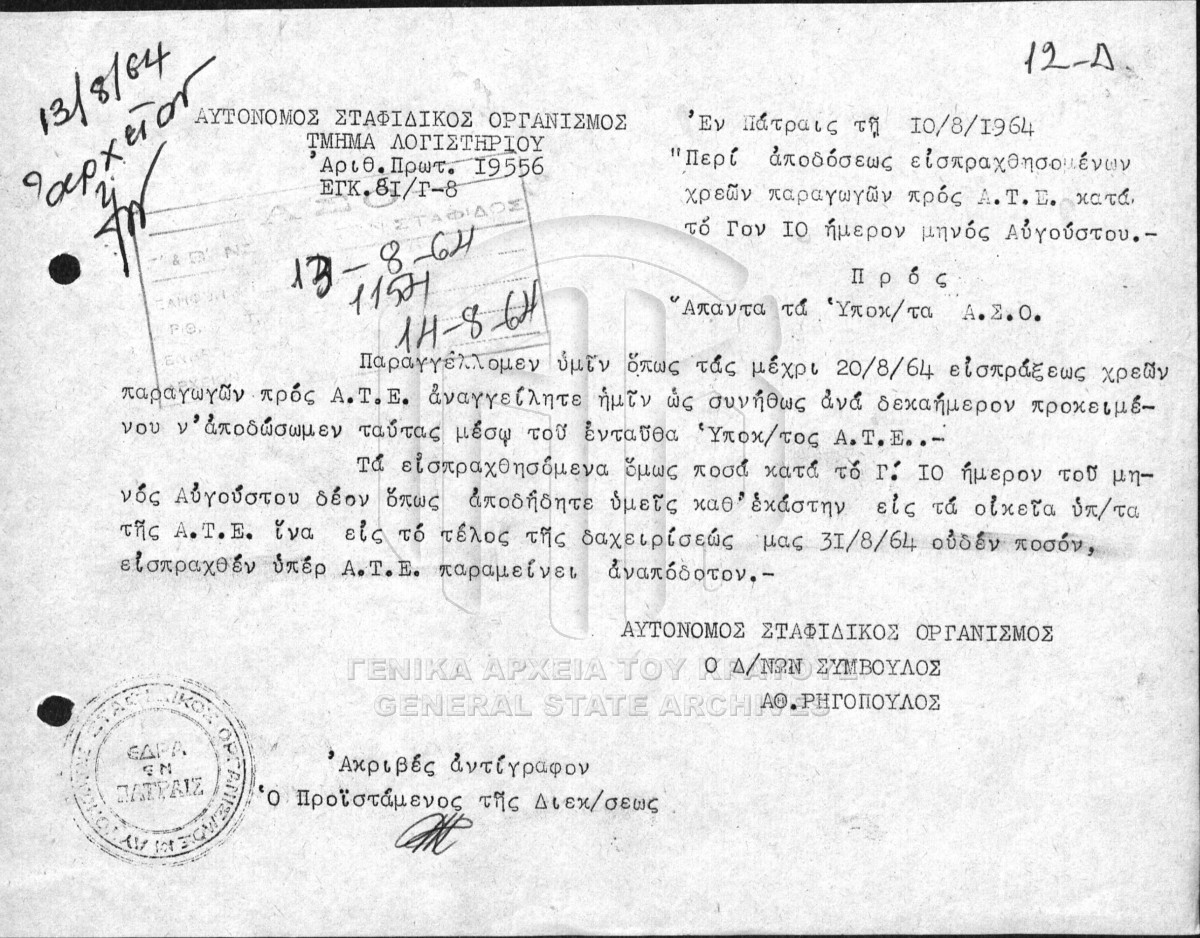 12-Δ
13/8/64
ΑΥΤΟΝΟΜΟΣ ΣΤΑΦΙΔΙΚΟΣ ΟΡΓΑΝΙΣΜΟΣ
ΤΜΗΜΑ ΛΟΓΙΣΤΗΡΙΟΥ
Ἀριθ.Πρωτ. Ι9556
ΕΓΚ.8Ι/Γ-8
Ἐν Πάτραις τῇ ΙΟ/8/Ι964
"Περί ἀποδόσεως εἰσπραχθησομένων
χρεῶν παραγωγῶν πρός Α.Τ.Ε. κατά
τό Γον ΙΟ ήμερον μηνός Αὐγούστου.-
Π ρ ό ς
Ἅπαντα τά Ὑποκ/τα Α.Σ.Ο.
13-8-64
1154
14-8-64
Παραγγέλλομεν ὑμῖν ὅπως τάς μέχρι 20/8/64 εἰσπράξεως χρεῶν
παραγωγῶν πρός Α.Τ.Ε. ἀναγγείλητε ἡμῖν ὡς συνήθως ἀνά δεκαήμερον προκειμέ-
νου ν'ἀποδώσωμεν ταύτας μέσῳ τοῦ ἐνταῦθα Ὑποκ/τος Α.Τ.Ε..-
Τά εἰσπραχθησόμενα ὅμως ποσά κατά τό Γ! ΙΟ ήμερον τοῦ μη-
νός Αὐγούστου δέον ὅπως ἀποδήδητε ὑμεῖς καθ'ἑκάστην εἰς τά οἰκεῖα ὑπ/τα
τῆς Α.Τ.Ε. ἵνα εἰς τό τέλος τῆς δαχειρίσεώς μας 3Ι/8/64 οὐδέν ποσόν,
εἰσπραχθέν ὑπέρ Α.Τ.Ε. παραμείνει ἀναπόδοτον.-
ΑΥΤΟΝΟΜΟΣ ΣΤΑΦΙΔΙΚΟΣ ΟΡΓΑΝΙΣΜΟΣ
Ο Δ/ΝΩΝ ΣΥΜΒΟΥΛΟΣ
ΑΘ.ΡΗΓΟΠΟΥΛΟΣ
ΓΕΝΙΚΑ ΑΡΧΕΙΑ ΤΟΥ ΚΡΑΤΟΥΣ
GENERAL STATE ARCHIVES
Ἀκριβές ἀντίγραφον
Ὁ Προϊστάμενος τῆς Διεκ/σεως
ΑΥΤΟΝΟΜΟΣ ΣΤΑΦΙΔΙΚΟΣ ΟΡΓΑΝΙΣΜΟΣ
ΕΔΡΑ
ΕΝ
ΠΑΤΡΑΙΣ